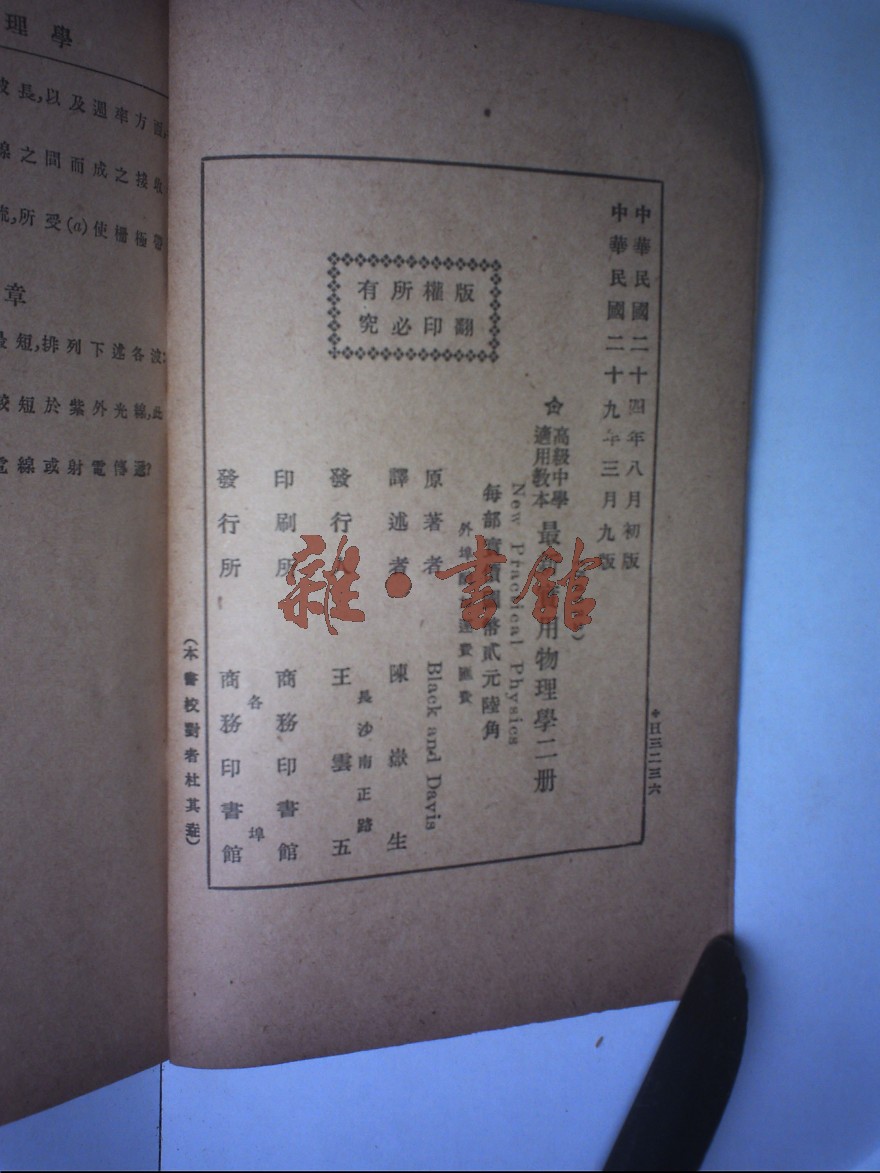 理學
波長,以及週率方面
線之間而成之接收
流,所受(a)使柵極帶
章
最短,排列下述各波
較短於紫外光線,此
電線或射電傳遞?
中華民國二十四年八月初版
中華民國二十九年三月九版
版權所有
翻印必究
高級中學
適用教本
最新實用物理學二册
New Practical Physics
每部實價國幣貳元陸角
外埠酌加運費匯費
原著者 Black and Davis
譯述者 陳嶽生
發行人 王雲五
長沙南正路
印刷所 商務印書館
各埠
發行所 商務印書館
(本書校對者杜其垚)
H三二三六
雜·書館